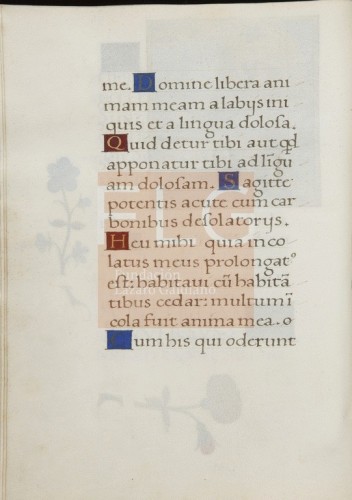 me. Domine libera ani
mam meam a labys ini
quis et a lingua dolosa.
Quid detur tibi aut qd
apponatur tibi ad līgu
am dolosam. Sagitte
potentis acute cum car
bonibus desolatorys.
Heu mihi quia inco
latus meus prolongat⁹
est: habitaui cū habitā
tibus cedar: multum ī
cola fuit anima mea. o
Cum his qui oderunt
FLG
Fundación
Lázaro Galdiano